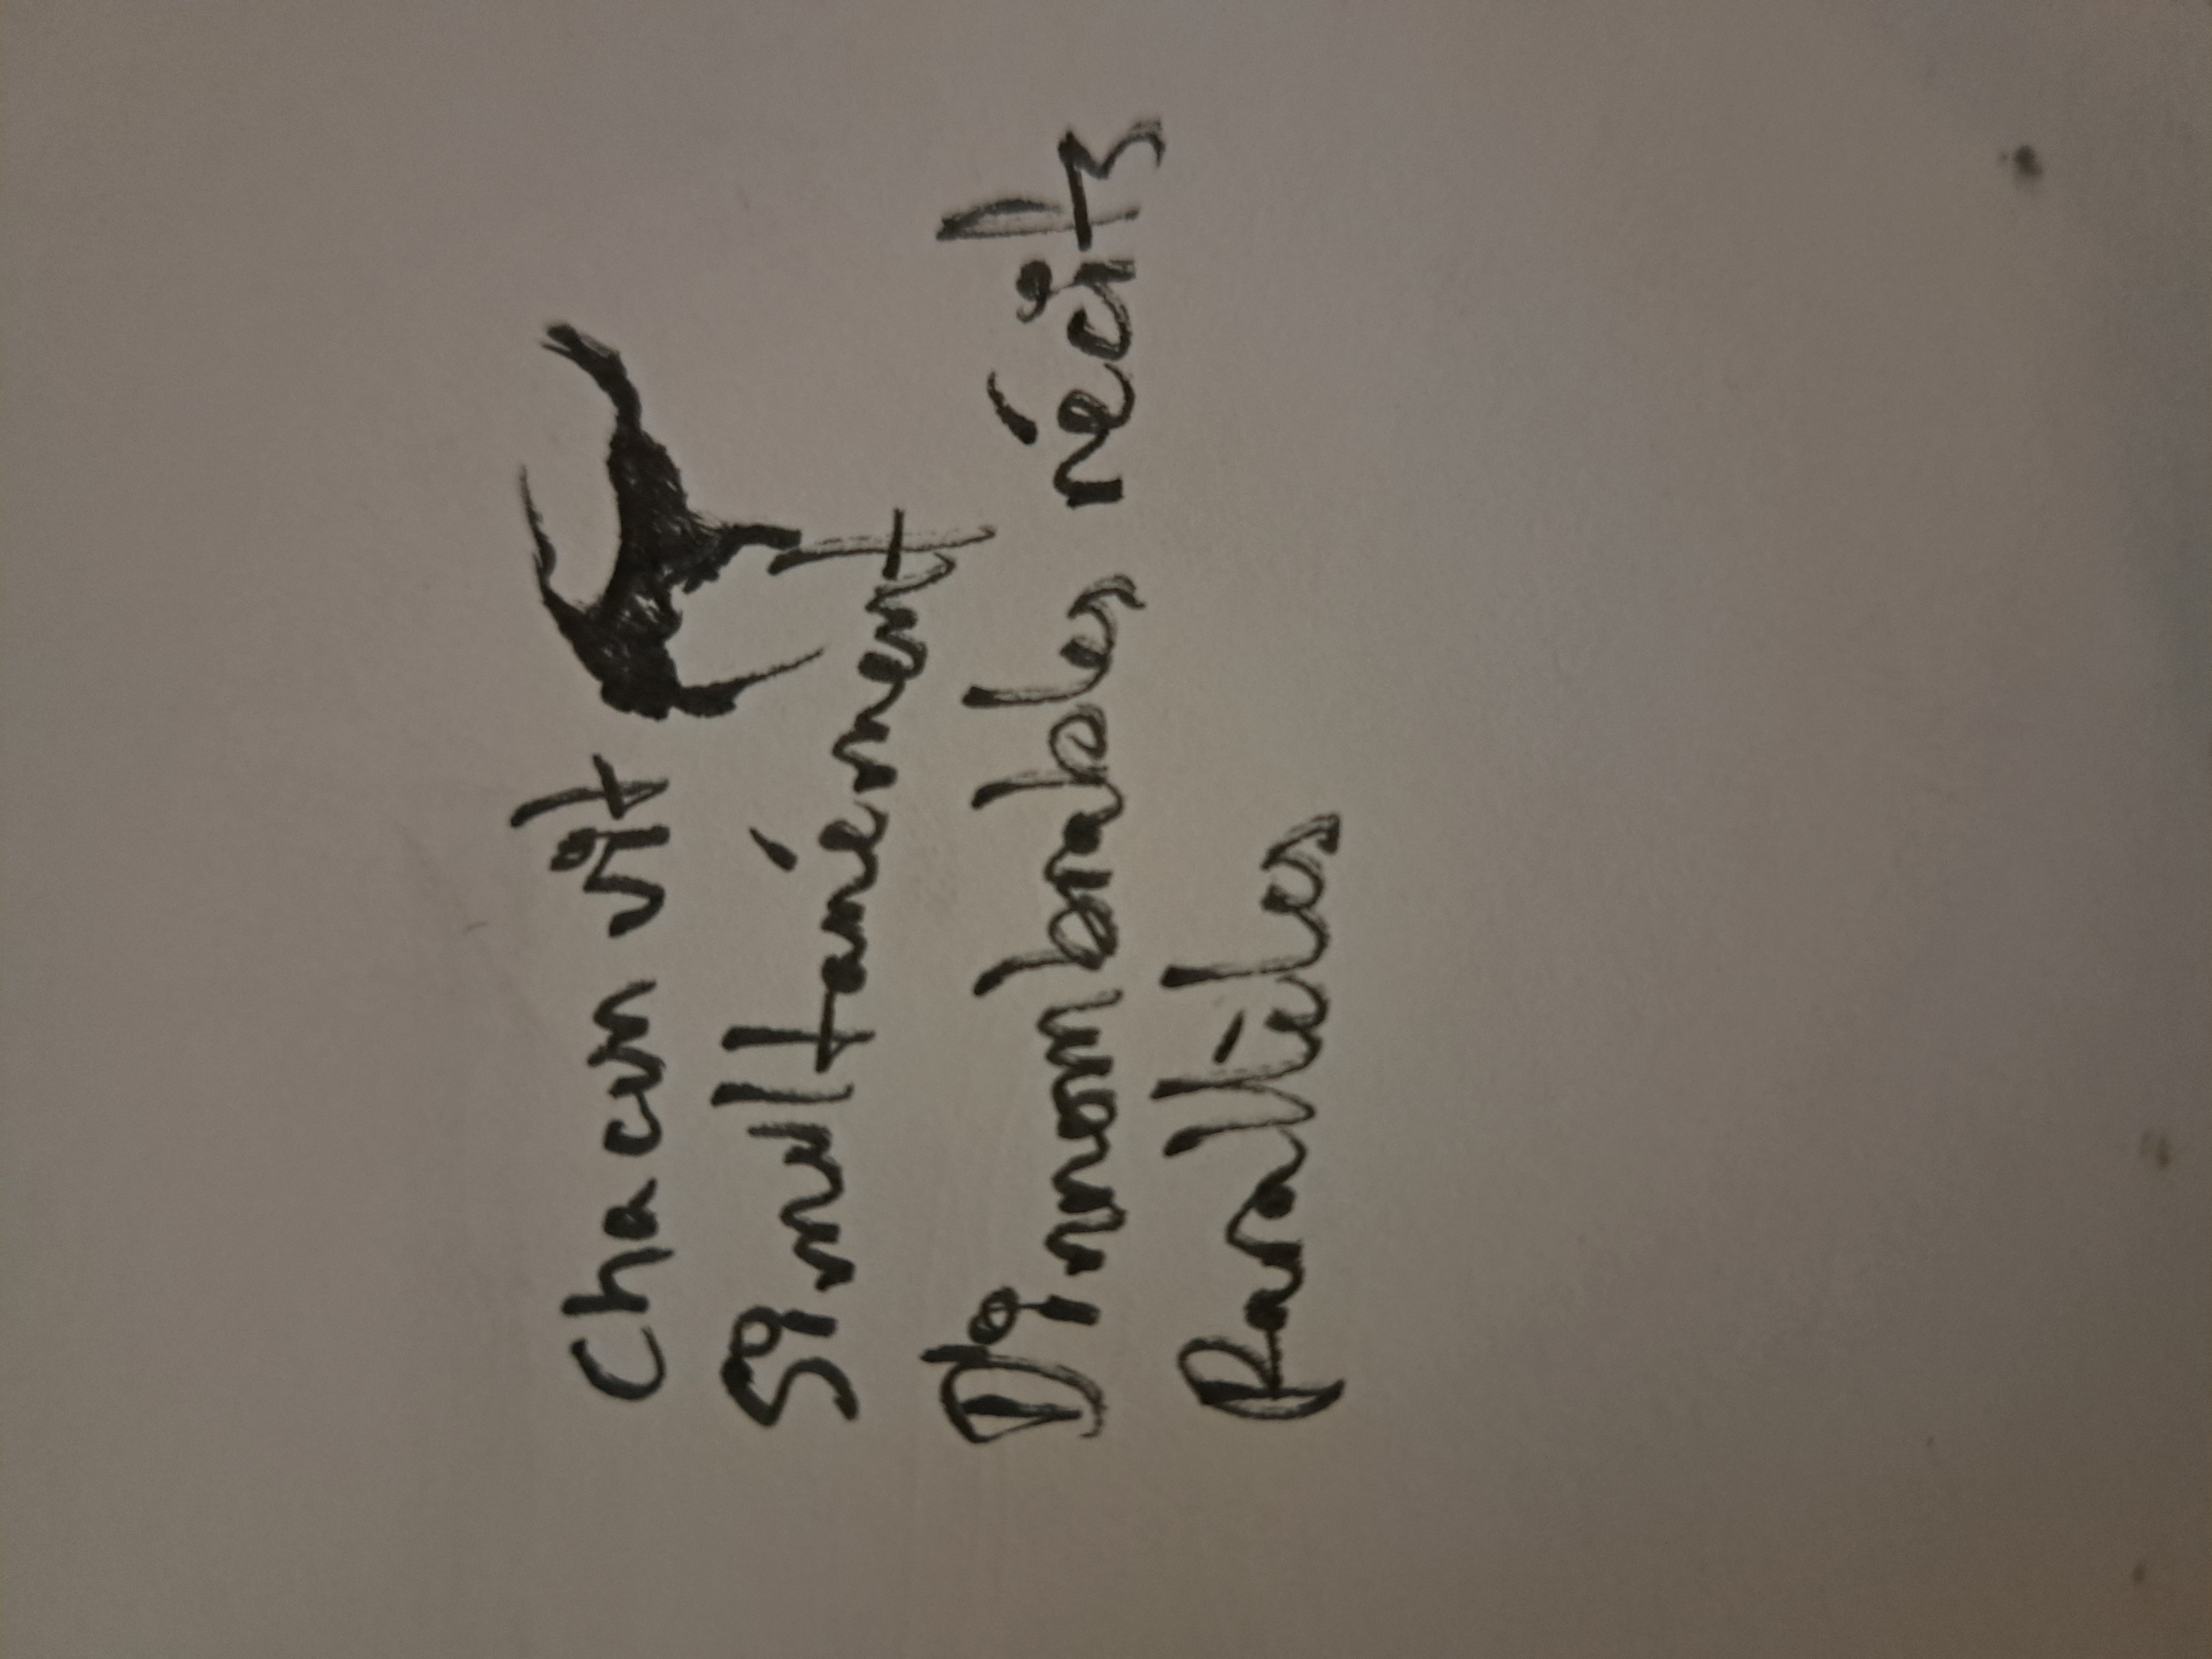 Chacun vit
Simultanément
D'innombrables récits
Parallèles